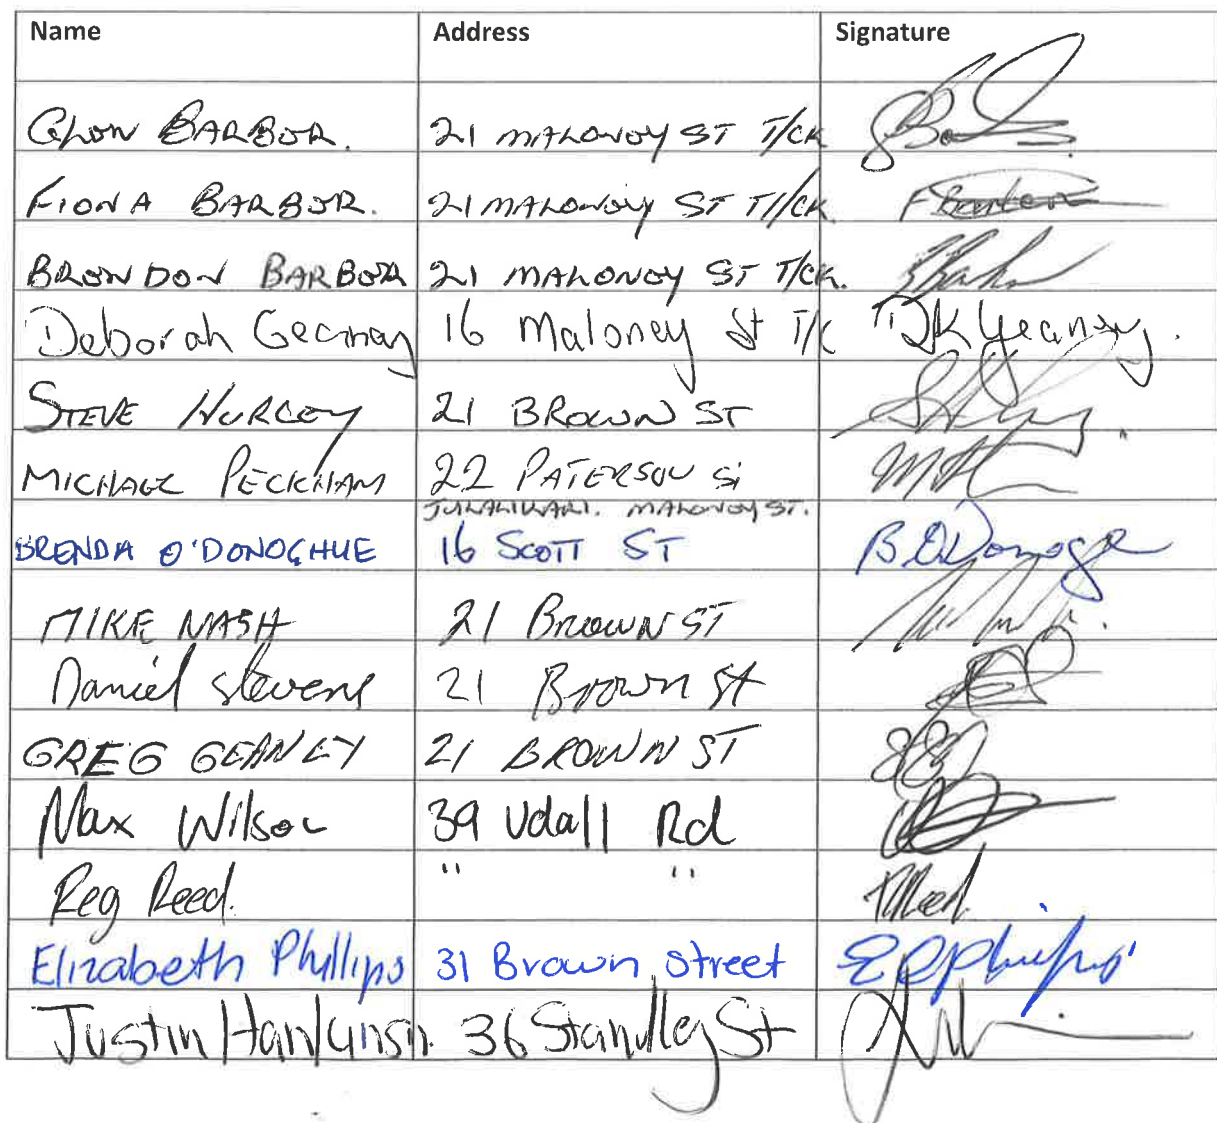 Name Address Signature
GLEN BARBER. 21 MALONEY ST T/CK GBar
FIONA BARBER. 21 MALONEY ST T//CK. F Barber
BRENDON BARBER 21 MALONEY ST T/CK. BBarb
Deborah Geaney 16 Maloney St T/C DK Geaney.
STEVE HURLEY 21 BROWN ST
MICHAEL PECKHAM 22 PATERSON ST
JULALIKARI. MALONEY ST.
BRENDA O'DONOGHUE 16 SCOTT ST B.O'Donoghue
MIKE NASH 21 BROWN ST
Daniel Stevens 21 Brown St
GREG GEANEY 21 BROWN ST
Max Wilson 39 Udall Rd
Reg Reed. " " RReed.
Elizabeth Phillips 31 Brown Street E Phillips
Justin Hankinson. 36 Standley St